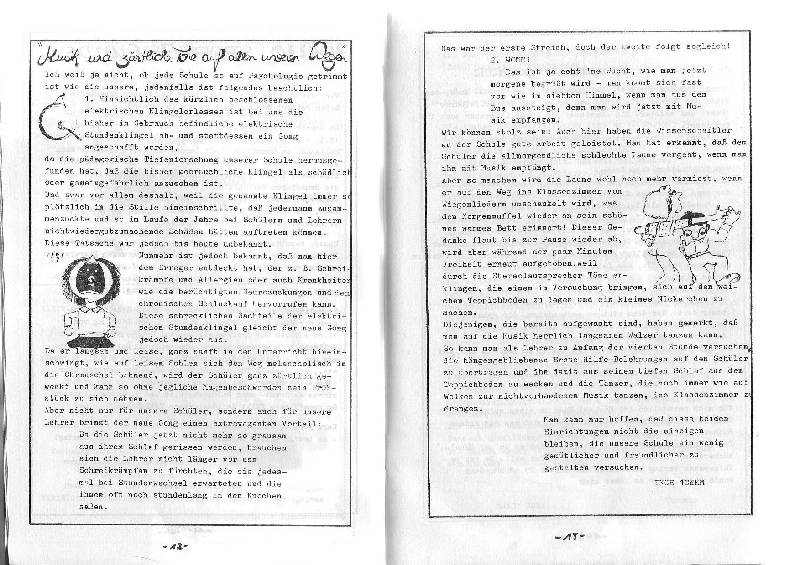 "Musik und zärtliche Töne auf allen unseren Wegen"
Ich weiß ja nicht, ob jede Schule so auf Psychologie getrimmt
ist wie die unsere, jedenfalls ist folgendes beachtlich:
1. Hinsichtlich des kürzlich beschlossenen
elektrischen Klingelerlasses ist bei uns die
bisher in Gebrauch befindliche elektrische
Stundenklingel ab- und stattdessen ein Gong
angeschafft worden,
da die pädagogische Tiefenforschung unserer Schule herausge-
funden hat, daß die bisher gebräuchliche Klingel als schädlich
oder gemeingefährlich anzusehen ist.
Das war vor allem deshalb, weil die genannte Klingel immer so
plötzlich in die Stille hineinschrillte, daß jedermann zusam-
menzuckte und so im Laufe der Jahre bei Schülern und Lehrern
nichtwiedergutzumachende Schäden hätten auftreten können.
Diese Tatsache war jedoch bis heute unbekannt.
Nunmehr ist jedoch bekannt, daß man hier
den Erreger entdeckt hat, der z. B. Schrei-
krämpfe und Allergien oder auch Krankheiten
wie die berüchtigten Nervenzuckungen und den
chronischen Schluckauf hervorrufen kann.
Diese schrecklichen Nachteile der elektri-
schen Stundenklingel gleicht der neue Gong
jedoch wieder aus.
Da er langsam und leise, ganz sanft in den Unterricht hinein-
schwingt, wie auf leisen Sohlen sich den Weg melancholisch in
die Ohrmuschel bahnend, wird der Schüler ganz zärtlich ge-
weckt und kann so ohne jegliche Magenbeschwerden sein Früh-
stück zu sich nehmen.
Aber nicht nur für unsere Schüler, sondern auch für unsere
Lehrer bringt der neue Gong einen extravaganten Vorteil:
Da die Schüler jetzt nicht mehr so grausam
aus ihrem Schlaf gerissen werden, brauchen
sich die Lehrer nicht länger vor den
Schreikrämpfen zu fürchten, die sie jedes-
mal bei Stundenwechsel erwarteten und die
ihnen oft noch stundenlang in den Knochen
saßen.
-12-
Das war der erste Streich, doch der zweite folgt zogleich!
2. WOGE!
Das ist ja echt 'ne Wucht, wie man jetzt
morgens begrüßt wird - man kommt sich fast
vor wie im siebten Himmel, wenn man aus dem
Bus aussteigt, denn man wird jetzt mit Mu-
sik empfangen.
Wir können stolz sein: Auch hier haben die Wissenschaftler
an der Schule gute Arbeit geleistet. Man hat erkannt, daß dem
Schüler die allmorgendliche schlechte Laune vergeht, wenn man
ihn mit Musik empfängt.
Aber so manchem wird die Laune wohl noch mehr vermiest, wenn
er auf dem Weg ins Klassenzimmer von
Wiegenliedern umschaukelt wird, was
den Morgenmuffel wieder an sein schö-
nes warmes Bett erinnert! Dieser Ge-
danke flaut bis zur Pause wieder ab,
wird aber während der paar Minuten
Freiheit erneut aufgehoben,weil
durch die Stereolautsprecher Töne er-
klingen, die einen in Versuchung bringen, sich auf den wei-
chen Teppichboden zu legen und ein kleines Nickerchen zu
machen.
Diejenigen, die bereits aufgewacht sind, haben gemerkt, daß
man auf die Musik herrlich langsamen Walzer tanzen kann.
So kann man als Lehrer zu Anfang der vierten Stunde versuchen,
die hängengebliebenen Erste Hilfe-Belehrungen auf den Schüler
zu übertragen und ihn damit aus seinem tiefen Schlaf aus dem
Teppichboden zu wecken und die Tänzer, die noch immer wie auf
Wolken zur nichtvorhandenen Musik tanzen, ins Klassenzimmer zu
drängen.
Man kann nur hoffen, daß diese beiden
Einrichtungen nicht die einzigen
bleiben, die unsere Schule ein wenig
gemütlicher und freundlicher zu
gestalten versuchen.
-13-